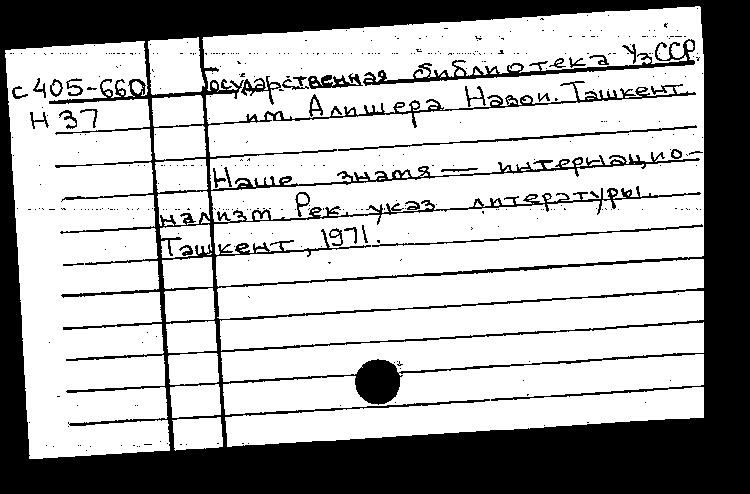 с 405-660 Государственная библиотека УзССР
Н 37 им. Алишера Навои. Ташкент.
Наше знамя — интернацио-
нализм. Рек. указ. литературы.
Ташкент, 1971.